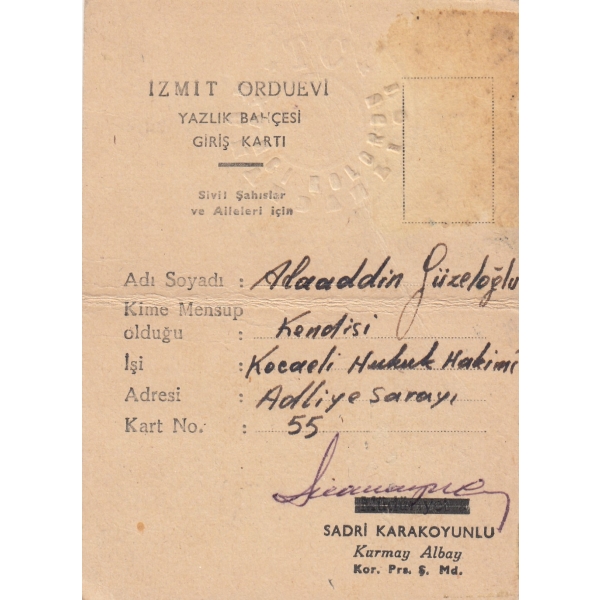 İZMİT ORDUEVİ
YAZLIK BAHÇESİ
GİRİŞ KARTI
Sivil Şahıslar
ve Aileleri için
Adı Soyadı : Alaaddin Güzeloğlu
Kime Mensup
olduğu : Kendisi
İşi : Kocaeli Hukuk Hakimi
Adresi : Adliye Sarayı
Kart No. : 55
SADRİ KARAKOYUNLU
Kurmay Albay
Kor. Prs. Ş. Md.